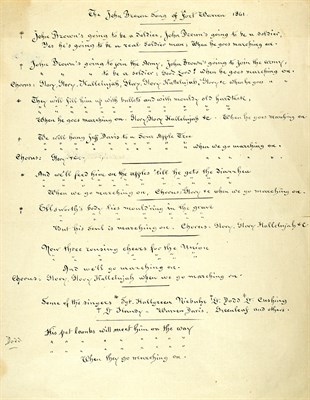 The John Brown Song of Fort Warren 1861.
John Brown's going to be a soldier, John Brown's going to be a soldier,
Yes he's going to be a real soldier man; When he goes marching on.
John Brown's going to join the Army, John Brown's going to join the army,
" " " to be a soldier; Good Lord! when he goes marching on.
Chorus: Glory, Glory, Hallelujah, Glory, Glory Hallelujah, Glory &c When he goes
They will fill him up with bullets and with mouldy old hardtack,
When he goes marching on. Glory Glory Hallelujah &c. When he goes marching on
We will hang Jeff Davis to a Sour Apple Tree
" when we go marching on.
Chorus: Glory
And we'll feed him on the apples 'till he gets the diarrhea
When we go marching on, Chorus: Glory &c when we go marching on.
Ellsworth's body lies mould'ring in the grave
But his soul is marching on. Chorus: Glory, Glory Hallelujah &C
Now three rousing cheers for the Union
And we'll go marching on.
Chorus: Glory, Glory Hallelujah when we go marching on.
Some of the singers Sgt. Hallgreen Niebuhr Lt. Dodd Lt. Cushings
Lt. Handy - Warren Davis. Greenleaf and others.
Dodd
His pet lambs will meet him on the way
When they go marching on.